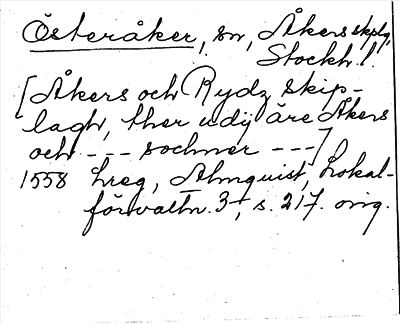 Österåker, sn, Åkers skplg,
Stockh. l.
[Åkers och Rydz skip-
lagh, ther udij äre Åkers
och --- sochner ---]
1558 hreg, Almquist, Lokal-
förvaltn. 3, s. 217. orig.